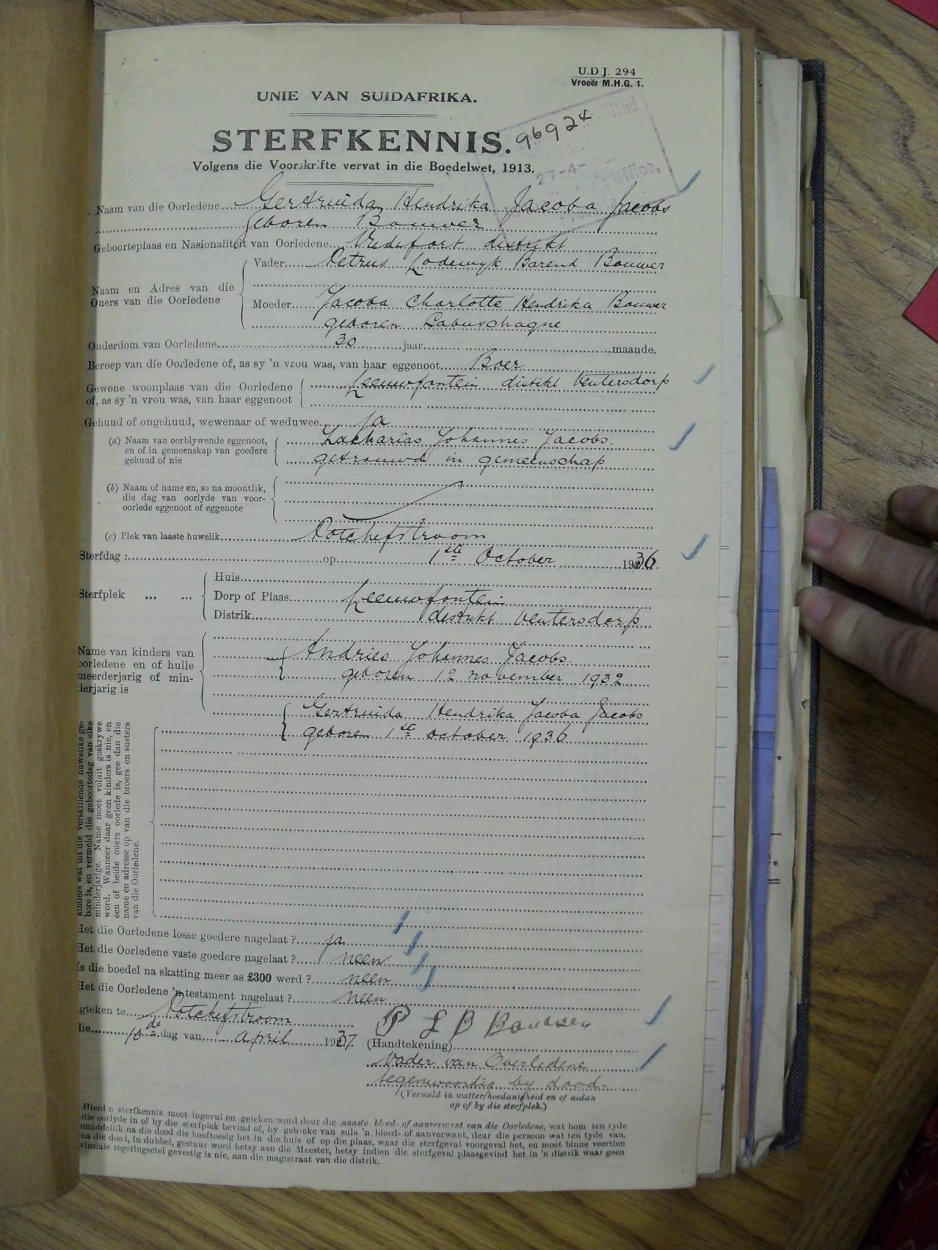 U.D J. 294
Vroeër M.H.G. 1.
UNIE VAN SUIDAFRIKA.
96924
STERFKENNIS.
27-4-
Volgens die Voorskrifte vervat in die Boedelwet, 1913.
Naam van die Oorledene Gertruida Hendrika Jacoba Jacobs
geboren Bouwer
Geboorteplaas en Nasionaliteit van Oorledene Vredefort distrikt
Naam en Adres van die Ouers van die Oorledene
Vader Petrus Lodewyk Barend Bouwer
Moeder Jacoba Charlotte Hendrika Bouwer
geboren Labuschagne
Ouderdom van Oorledene 30 jaar maande.
Beroep van die Oorledene of, as sy 'n vrou was, van haar eggenoot Boer
Gewone woonplaas van die Oorledene of, as sy 'n vrou was, van haar eggenoot
Leeuwfontein distikt Ventersdorp
Gehuud of ongehuud, wewenaar of weduwee ja
(a) Naam van oorblywende eggenoot, en of in gemeenskap van goedere gehuud of nie
Zacharias Johannes Jacobs.
getrouwd in gemeenschap
(b) Naam of name en, so na moontlik, die dag van oorlyde van vooroorlede eggenoot of eggenote
(c) Plek van laaste huwelik Potchefstroom
Sterfdag: op 1ste October 1936
Sterfplek ... ...
Huis
Dorp of Plaas Leeuwfontein
Distrik distrikt Ventersdorp
Name van kinders van oorledene en of hulle meerderjarig of minderjarig is
Andries Johannes Jacobs
geboren 12 november 1932
Gertruida Hendrika Jacoba Jacobs
geboren 1ste october 1936
kinders wat uit die verskillende huwelike gebore is, en vermeld die geboortedag van elke minderjarige. Name moet voluit geskrywe word. Wanneer daar geen kinders is nie, en een of beide ouers oorlede is, gee dan die name en adresse op van die broers en susters van die Oorledene.
Het die Oorledene losse goedere nagelaat? ja
Het die Oorledene vaste goedere nagelaat? neen
Is die boedel na skatting meer as £300 werd? neen
Het die Oorledene 'n testament nagelaat? neen
gteken te Potchefstroom
die 10de dag van April 1937.
P L B Bouwer
(Handtekening)
Vader van Overledene
tegenwoordig by dood.
(Vermeld in watter hoedanigheid en of asdan
op of by die sterfplek.)
Hierdie sterfkennis moet ingevul en geteken word deur die naaste bloed- of aanverwant van die Oorledene, wat hom ten tyde
die oorlyde in of by die sterfplek bevind of, by gebreke van sulk 'n bloed- of aanverwant, deur die persoon wat ten tyde van,
onmiddelik na die dood die hooftoesig het in die huis of op die plaas, waar die sterfgeval voorgeval het, en moet binne veertien
na die dood, in dubbel, gestuur word hetsy aan die Meester, hetsy indien die sterfgeval plaasgevind het in 'n distrik waar geen
winsiale regeringsetel gevestig is nie, aan die magistraat van die distrik.